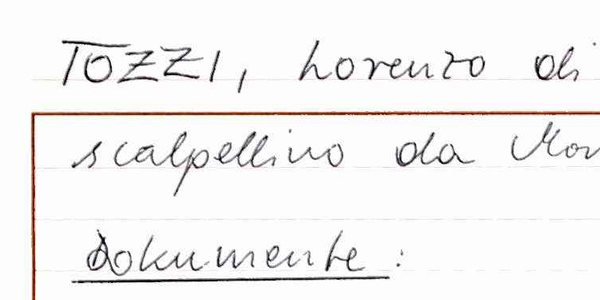 TOZZI, Lorenzo di
scalpellino da
Dokumente: